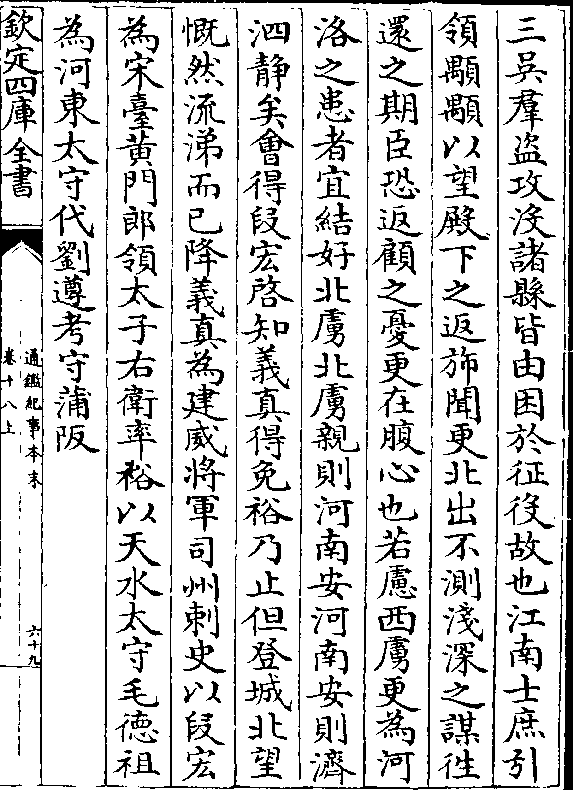 三吳羣盗攻没諸縣皆由困於征役故也江南士庶引
領顒顒以望殿下之返斾聞更北出不測淺深之謀徃
還之期臣恐返顧之憂更在腹心也若慮西虜更為河
洛之患者宜結好北虜北虜親則河南安河南安則濟
泗静矣㑹得段宏啓知義真得免裕乃止但登城北望
慨然流涕而已降義真為建威將軍司州刺史以段宏
為宋臺黄門郎領太子右衛率裕以天水太守毛徳祖
為河東太守代劉遵考守蒲阪
欽定四庫全書
通鑑紀事本末
卷十八上
六十九